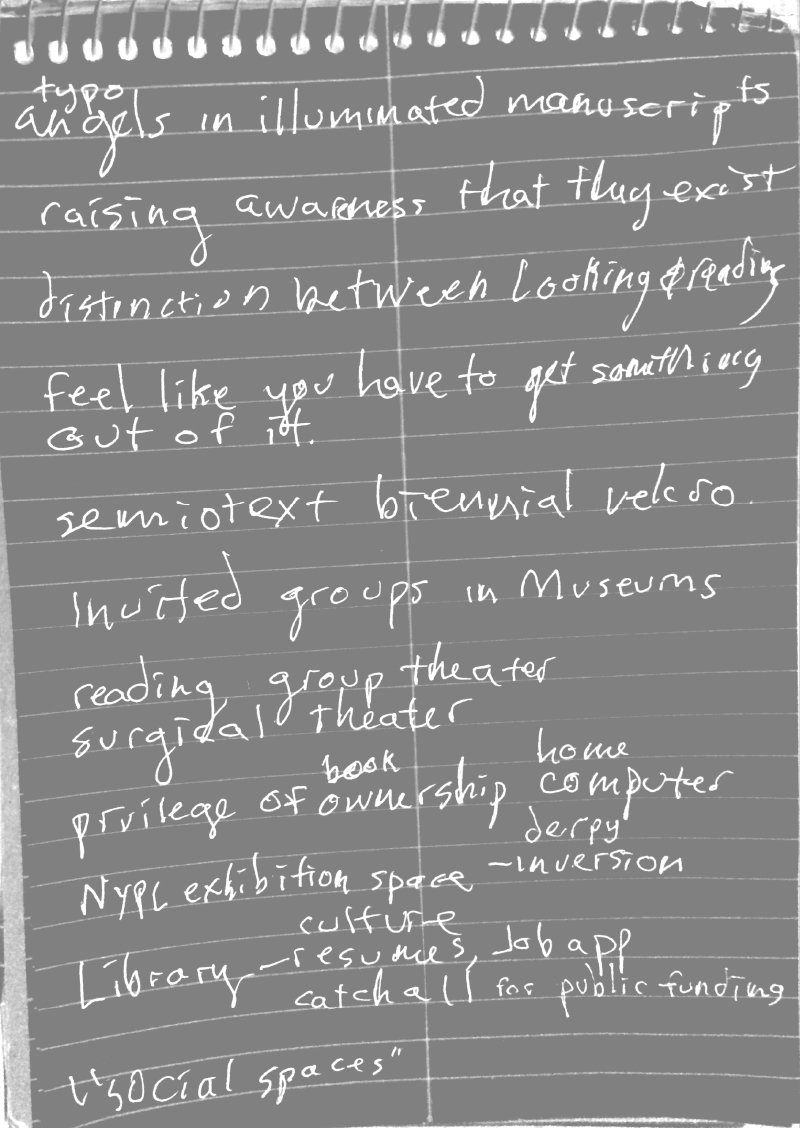 typo
angels in illuminated manuscripts
raising awareness that they exist
distinction between looking & reading
feel like you have to get something
out of it.
semiotext biennial velcro.
Invited groups in Museums
reading group theater
surgical theater
book home
privilege of ownership computer
derpy
NYPL exhibition space - inversion
culture
Library - resumes, Job app
catch all for public funding
"social spaces"